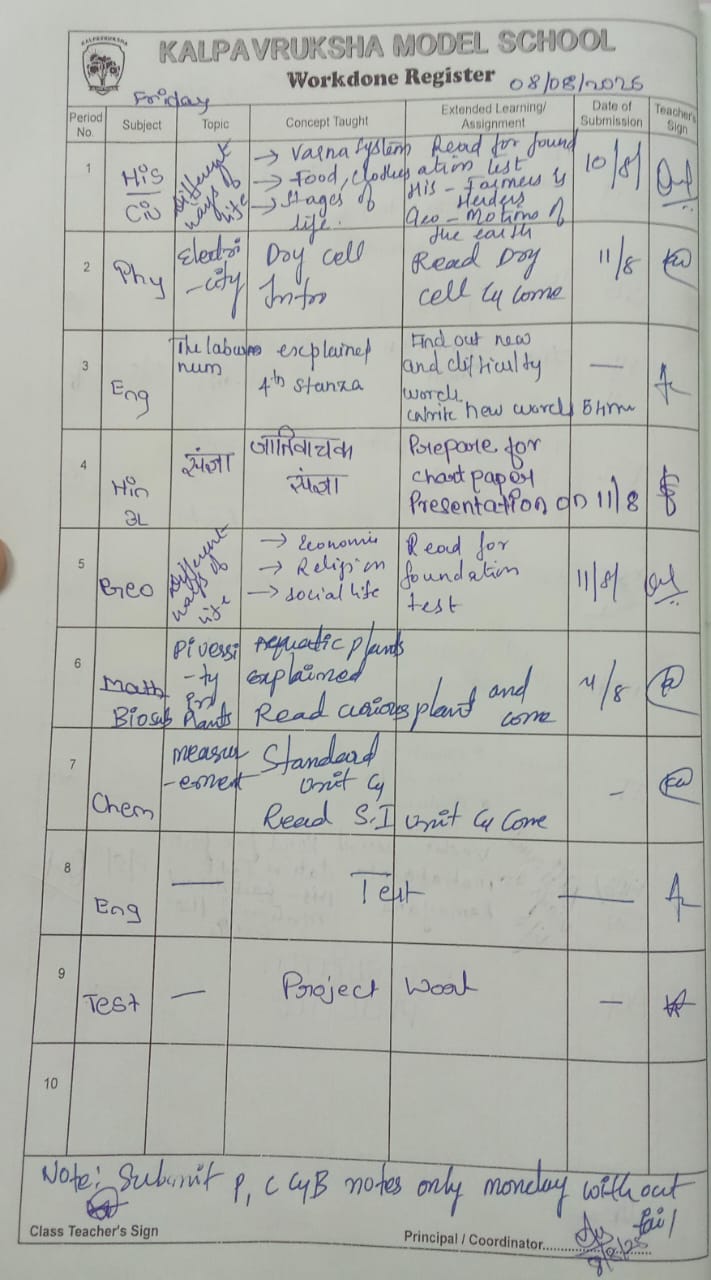 KALPAVRUKSHA
KALPAVRUKSHA MODEL SCHOOL
Workdone Register 08/08/2025
Friday
Period No. Subject Topic Concept Taught Extended Learning/ Assignment Date of Submission Teacher's Sign
1 His Civ Different ways of life → Varna System → Food, clothes → Stages of life. Read for foundation test His - Farmers & Herders Geo - Motions of the earth 10/8/
2 Phy Electri-city Dry cell Intro Read Dry cell & come 11/8
3 Eng The laburnum explained 4th stanza Find out new and difficulty word. Write new words 5 times —
4 Hin 3L संज्ञा जातिवाचक संज्ञा Prepare for chart paper Presentation on 11/8
5 Geo Different ways of life → Economic → Religion → social life Read for foundation test 11/8/
6 Math Biosub Diversi-ty in Plants Aquatic plants explained Read various plant and come 11/8
7 Chem measur-ement Standard unit & Read S.I unit & come -
8 Eng — Test —
9 Test — Project Work —
10
Note: Submit P, C & B notes only monday without fail
Class Teacher's Sign Principal / Coordinator
8/8/25